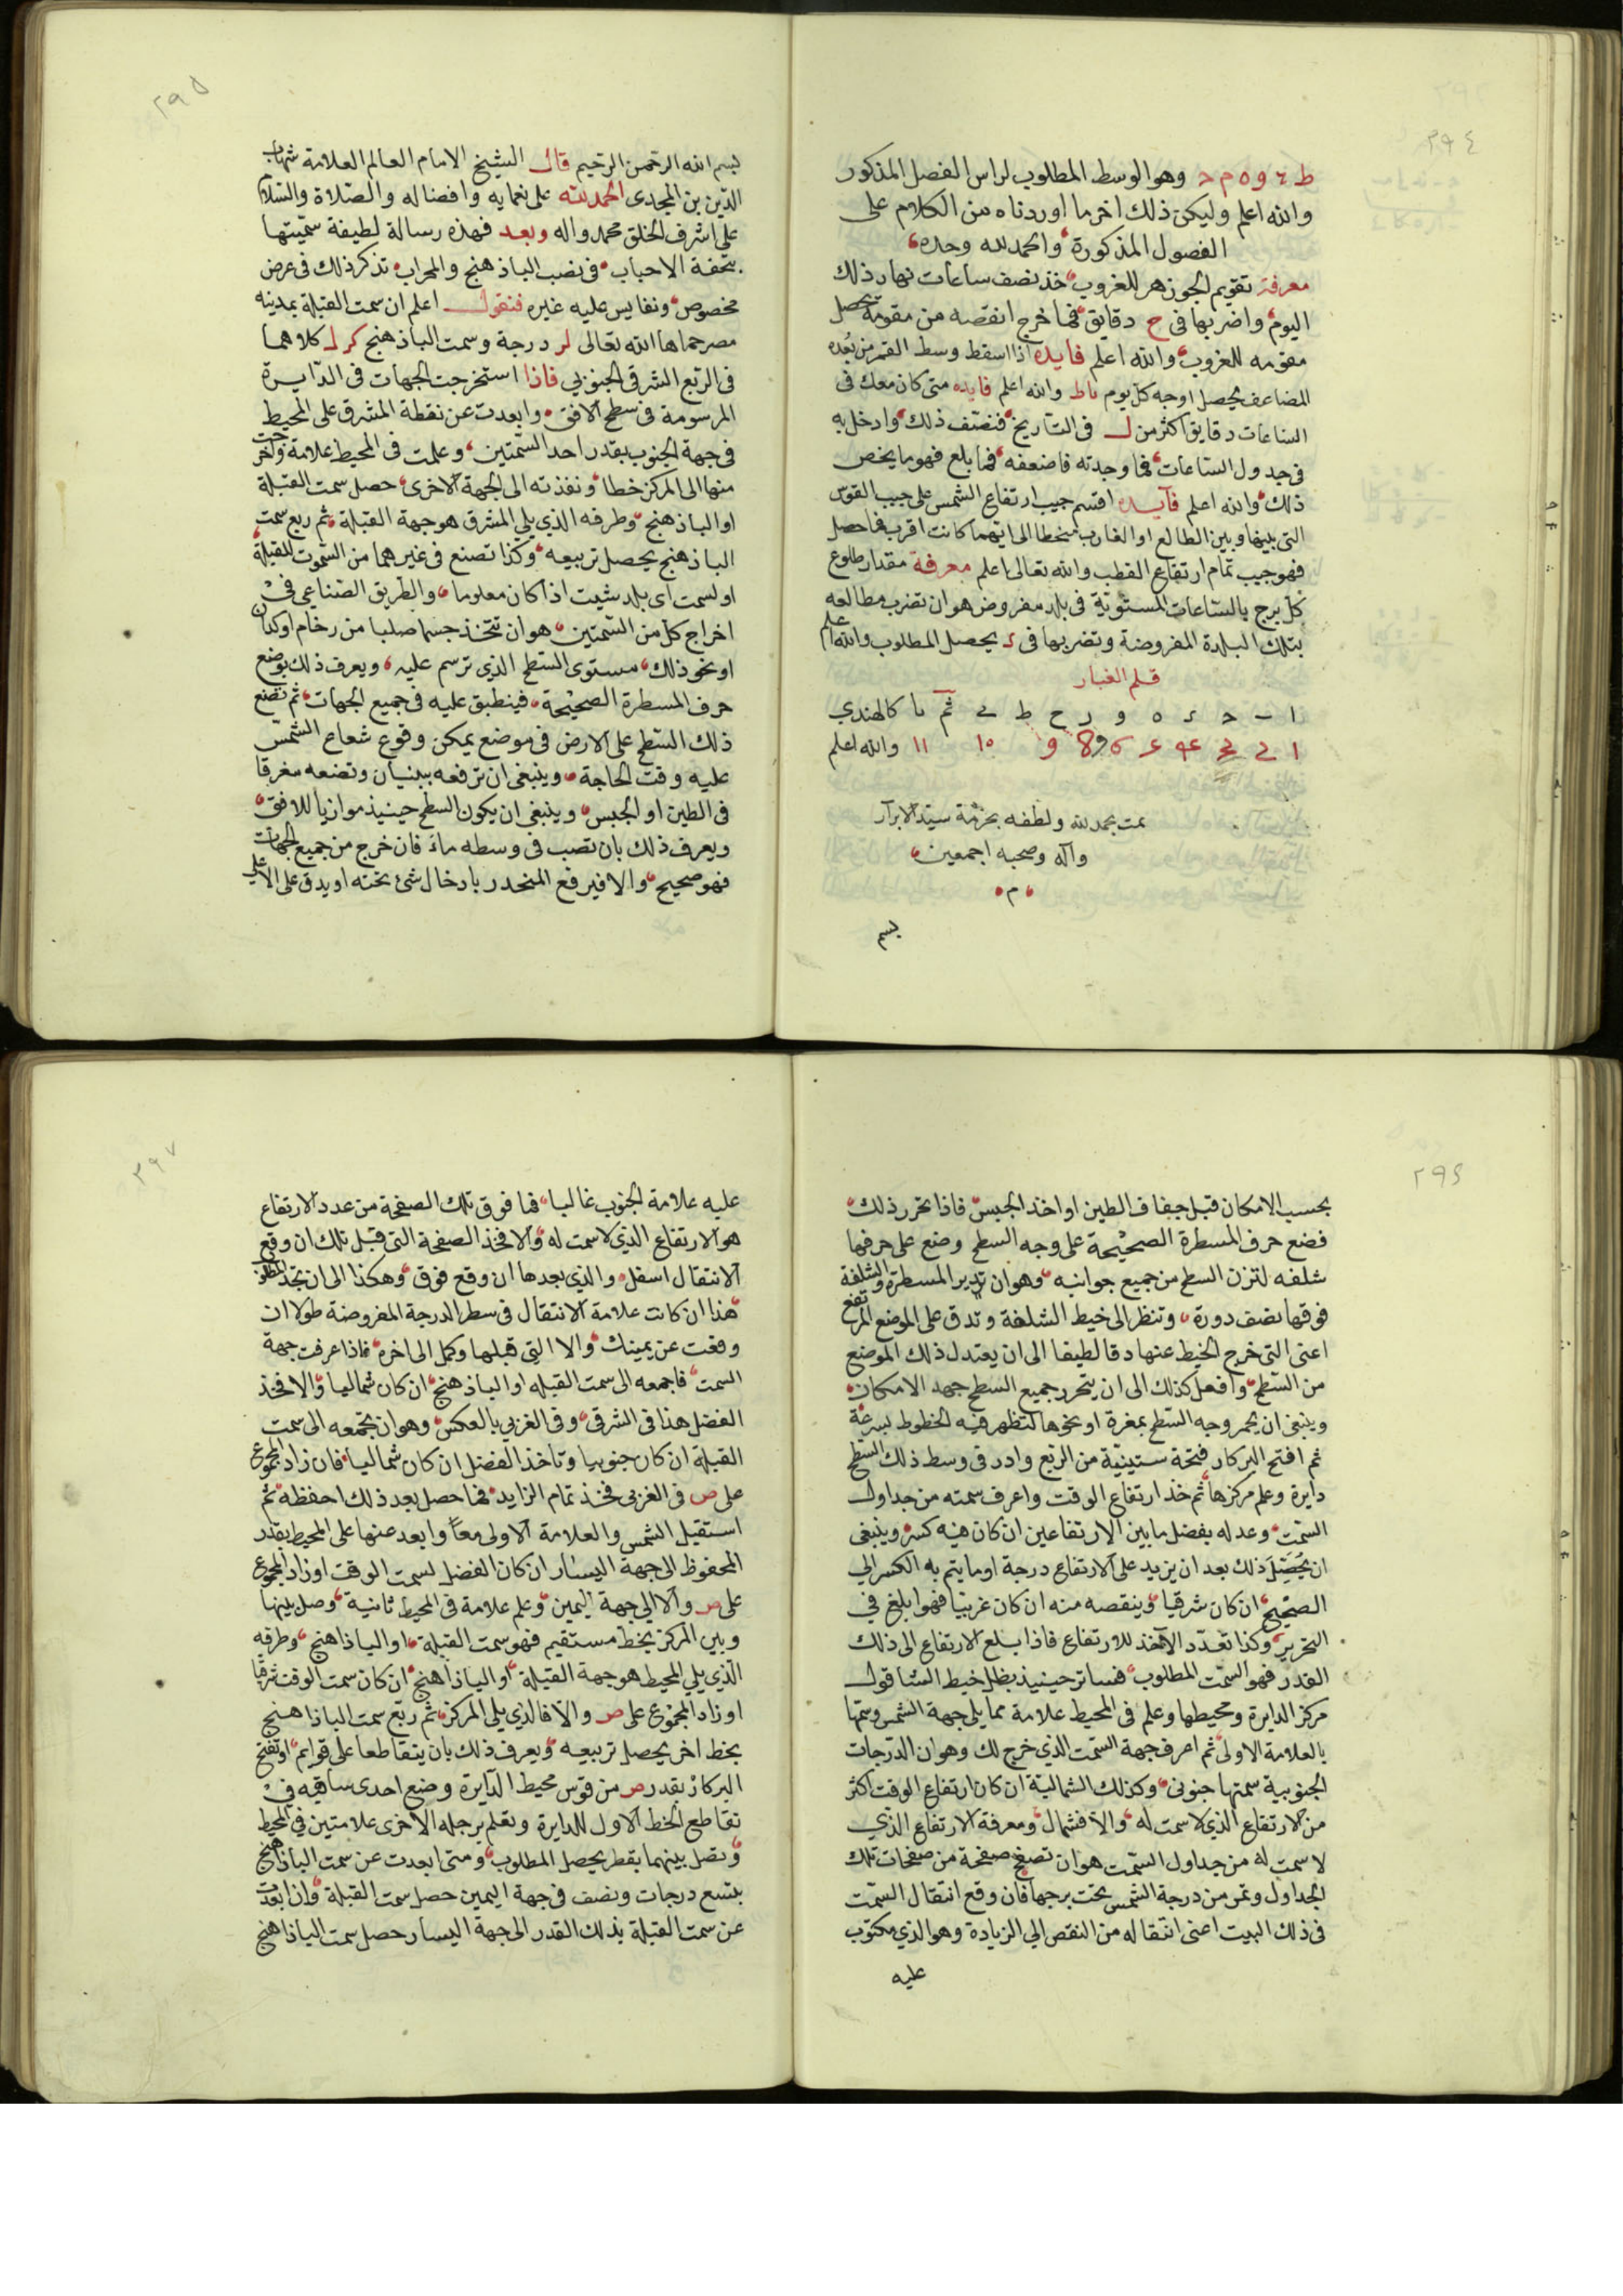 ٢٩٤
ط ٤ و ٥ م د وهو الوسط المطلوب لراس الفصل المذكور
والله اعلم وليكن ذلك اخر ما اوردناه من الكلام على
الفصول المذكورة والحمد لله وحده
معرفة تقويم الجوزهر للغروب خذ نصف ساعات نهار ذلك
اليوم واضربها في ح دقايق فما خرج انقصه من مقومة يحصل
مقومه للغروب والله اعلم فايده اذا اسقط وسط القمر من بعده
المضاعف يحصل اوجه كل يوم ىا ط والله اعلم فايده متى كان معك في
الساعات دقايق اكثر من ل في التاريخ فنصف ذلك وادخل به
في جدول الساعات فما وجدته فاضعفه فما بلغ فهو ما يخص
ذلك والله اعلم فآيده اقسم جيب ارتفاع الشمس على جيب القوس
التي بينها وبين الطالع او الغارب منحطا الى ايتهما كانت اقرب فما حصل
فهو جيب تمام ارتفاع القطب والله تعالى اعلم معرفة مقدار طلوع
كل برج بالساعات المستوية في بلد مفروض هو ان تضرب مطالعه
بتلك البلدة المفروضة وتضربها في د يحصل المطلوب والله اعلم
قلم الغبار
ا ـ حـ د ه و ر ح ط ى ثم ىا كالهندي
والله اعلم
تمت بحمد الله ولطفه بحرمة سيد الابرار
وآله وصحبه اجمعين
م
بسم
٢٩٥
بسم الله الرحمن الرحيم قال الشيخ الامام العالم العلامة شهاب
الدين بن المجدى الحمد لله على نعمايه وافضاله والصلاة والسلام
على اشرف الخلق محمد واله وبعد فهذه رسالة لطيفة سميتها
بتحفة الاحباب في نصب الباذهنج والمحراب تذكر ذلك في عرض
مخصوص ونقايس عليه غيره فنقول اعلم ان سمت القبلة بمدينه
مصر حماها الله تعالى لر درجة وسمت الباذهنج كر ل كلاهما
في الربع الشرقي الجنوبي فاذا استخرجت الجهات في الدايرة
المرسومة في سطح الافق وابعدت عن نقطة المشرق على المحيط
في جهة الجنوب بقدر احد السمتين وعلمت في المحيط علامة واخرجت
منها الى المركز خطا ونفذته الى الجهة الاخرى حصل سمت القبلة
او الباذهنج وطرفه الذي يلي المشرق هو جهة القبلة ثم ربع سمت
الباذهنج يحصل تربيعه وكذا تصنع في غيرهما من السموت للقبلة
او لسمت اى بلد شيت اذا كان معلوما والطريق الصناعي في
اخراج كل من السمتين هو ان تتخذ جسما صلبا من رخام او كدان
او نحو ذلك مستوى السطح الذي ترسم عليه ويعرف ذلك بوضع
حرف المسطرة الصحيحة فينطبق عليه في جميع الجهات ثم تضع
ذلك السطح على الارض في موضع يمكن وقوع شعاع الشمس
عليه وقت الحاجة وينبغي ان ترفعه ببنيان وتضعه مغرقا
في الطين او الجبس وينبغي ان يكون السطح حينيذ موازيا للافق
ويعرف ذلك بان تصب في وسطه ماء فان خرج من جميع الجهات
فهو صحيح والا فيرفع المنحدر بادخال شئ تحته او يدق على الاعلى
٢٩٦
بحسب الامكان قبل جفاف الطين او اخذ الجبس فاذا تحرر ذلك
فضع حرف المسطرة الصحيحة على وجه السطح وضع على حرفها
شلفه لتزن السطح من جميع جوانبه وهو ان تدير المسطرة والشلفة
فوقها نصف دورة وتنظر الى خيط الشلفة وتدق على الموضع المرتفع
اعنى التي خرج الخيط عنها دقا لطيفا الى ان يعتدل ذلك الموضع
من السطح وافعل كذلك الى ان يتحرر جميع السطح جهد الامكان
وينبغي ان يحمر وجه السطح بمغرة او نحوها لتظهر فيه الخطوط بسرعة
ثم افتح البركار فتحة ستينية من الربع وادر في وسط ذلك السطح
دايرة وعلم مركزها ثم خذ ارتفاع الوقت واعرف سمته من جداول
السمت وعدله بفضل ما بين الارتفاعين ان كان فيه كسر وينبغي
ان يحصل ذلك بعد ان يزيد على الارتفاع درجة او ما يتم به الكسر الي
الصحيح ان كان شرقيا وينقصه منه ان كان غربيا فهو ابلغ في
التحرير وكذا تعدد الآخذ للارتفاع فاذا بلغ الارتفاع الى ذلك
القدر فهو السمت المطلوب فساتر حينيذ بظل خيط الشاقول
مركز الدايرة ومحيطها وعلم في المحيط علامة مما يلي جهة الشمس وسمها
بالعلامة الاولى ثم اعرف جهة السمت الذي خرج لك وهو ان الدرجات
الجنوبية سمتها جنوبي وكذلك الشمالية ان كان ارتفاع الوقت اكثر
من الارتفاع الذي لا سمت له والا فشمال ومعرفة الارتفاع الذي
لا سمت له من جداول السمت هو ان تصفح صفحة من صفحات تلك
الجداول وتمر من درجة الشمس تحت برجها فان وقع انتقال السمت
في ذلك البيت اعنى انتقاله من النقص الي الزيادة وهو الذي مكتوب
عليه
٢٩٧
عليه علامة الجنوب غالبا فما فوق تلك الصفحة من عدد الارتفاع
هو الارتفاع الذي لا سمت له والا فخذ الصفحة التي قبل تلك ان وقع
الانتقال اسفل والذي بعدها ان وقع فوق وهكذا الى ان تجد المطلوب
هذا ان كانت علامة الانتقال في سطر الدرجة المفروضة طولا ان
وقعت عن يمينك والا التي قبلها وكمل الى اخره فاذا عرفت جهة
السمت فاجمعه الى سمت القبله او الباذهنج ان كان شماليا والا فخذ
الفضل هذا في الشرقي وفي الغربي بالعكس وهو ان تجمعه الى سمت
القبلة ان كان جنوبيا وتاخذ الفضل ان كان شماليا فان زاد المجموع
على ص في الغربي فخذ تمام الزايد فما حصل بعد ذلك احفظه ثم
استقبل الشمس والعلامة الاولى معا وابعد عنها على المحيط بقدر
المحفوظ الى جهة اليسار ان كان الفضل لسمت الوقت او زاد المجموع
على ص والا الي جهة اليمين وعلم علامة في المحيط ثانية وصل بينها
وبين المركز بخط مستقيم فهو سمت القبلة او الباذاهنج وطرفه
الذي يلي المحيط هو جهة القبلة او الباذاهنج ان كان سمت الوقت شرقيا
او زاد المجموع على ص والا فالذي يلي المركز ثم ربع سمت الباذاهنج
بخط اخر يحصل تربيعه ويعرف ذلك بان يتقاطعا على قوايم او تفتح
البركار بقدر ص من قوس محيط الدايرة وضع احدى ساقيه في
تقاطع الخط الاول للدايرة وتعلم برجله الاخرى علامتين في المحيط
وتصل بينهما بقطر يحصل المطلوب ومتى ابعدت عن سمت الباذاهنج
بتسع درجات ونصف في جهة اليمين حصل سمت القبلة وان ابعدت
عن سمت القبلة بذلك القدر الى جهة اليسار حصل سمت الباذاهنج